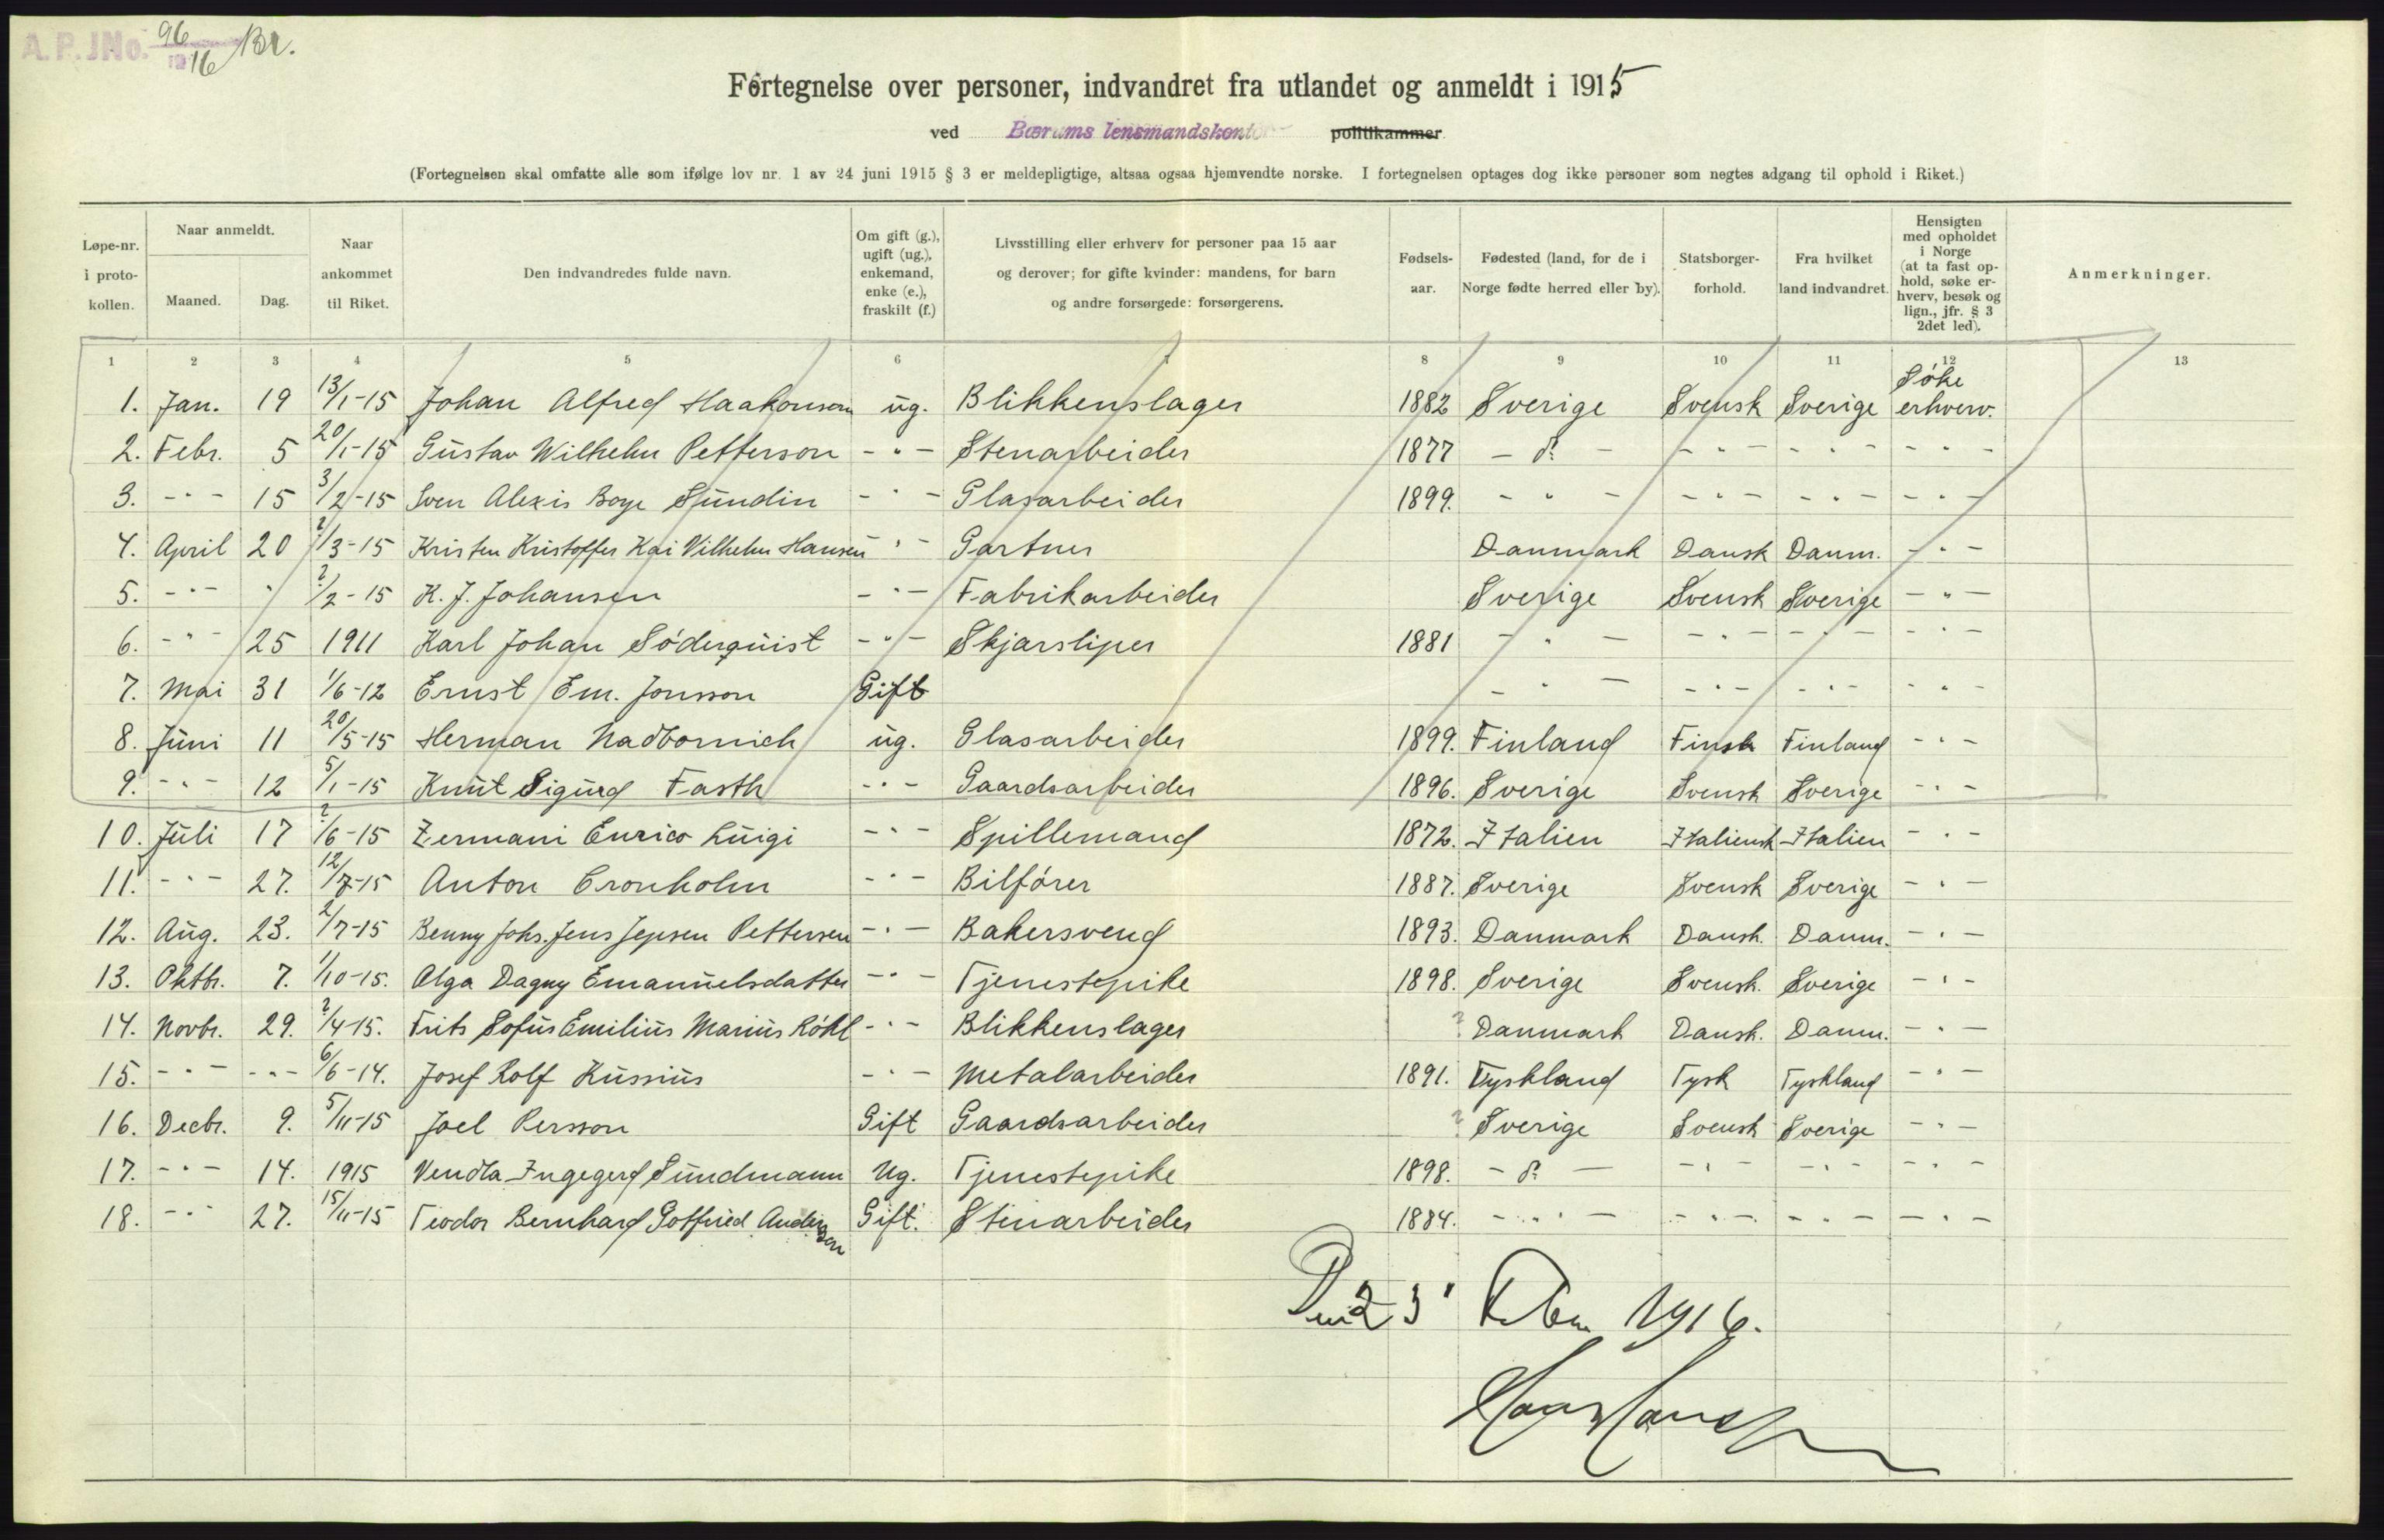 A.P. JNo. 96/1916 Br.
Fortegnelse over personer, indvandret fra utlandet og anmeldt i 1915
ved Bærums lensmandskontor politikammer
(Fortegnelsen skal omfatte alle som ifølge lov nr. 1 av 24 juni 1915 § 3 er meldepligtige, altsaa ogsaa hjemvendte norske. I fortegnelsen optages dog ikke personer som negtes adgang til ophold i Riket.)
Løpe-nr. i proto-kollen.
Naar anmeldt.
Maaned. Dag.
Naar ankommet til Riket.
Den indvandredes fulde navn.
Om gift (g.), ugift (ug.), enkemand, enke (e.), fraskilt (f.)
Livsstilling eller erhverv for personer paa 15 aar og derover; for gifte kvinder: mandens, for barn og andre forsørgede: forsørgerens.
Fødsels-aar.
Fødested (land, for de i Norge fødte herred eller by).
Statsborger-forhold.
Fra hvilket land indvandret.
Hensigten med opholdet i Norge (at ta fast op-hold, søke er-hverv, besøk og lign., jfr. § 3 2det led).
Anmerkninger.
1 2 3 4 5 6 7 8 9 10 11 12 13
1. Jan. 19 13/1-15 Johan Alfred Haakonson ug. Blikkenslager 1882 Sverige Svensk Sverige Søke erhverv.
2. Febr. 5 20/1-15 Gustav Wilhelm Petterson - " - Stenarbeider 1877 - d? - - " - - " - - " -
3. - " - 15 3/2-15 Sven Alexis Boye Sundin - " - Glasarbeider 1899. - " - - " - - " - - " -
4. April 20 ?/3-15 Kristen Kristoffer Kai Vilhelm Hansen - " - Gartner Danmark Dansk Danm. - " -
5. - " - " ?/2-15 K. J. Johansen - " - Fabrikarbeider Sverige Svensk Sverige - " -
6. - " - 25 1911 Karl Johan Söderquist - " - Skjærsliper 1881 - " - - " - - " - - " -
7. Mai 31 1/6-12 Ernst Em. Jonsson Gift - " - - " - - " - - " -
8. Juni 11 20/5-15 Herman Nadbornich ug. Glasarbeider 1899. Finland Finsk Finland - " -
9. - " - 12 5/1-15 Knut Sigurd Fasth - " - Gaardsarbeider 1896. Sverige Svensk Sverige - " -
10. Juli 17 ?/6-15 Zermani Enrico Luigi - " - Spillemand 1872. Italien Italiensk Italien - " -
11. - " - 27. 12/7-15 Anton Cronholm - " - Bilfører 1887. Sverige Svensk Sverige - " -
12. Aug. 23. 2/7-15 Benny Johs. Jens Jepsen Pettersen - " - Bakersvend 1893. Danmark Dansk. Danm. - " -
13. Oktbr. 7. 1/10-15. Olga Dagny Emanuelsdatter - " - Tjenestepike 1898. Sverige Svensk. Sverige - " -
14. Novbr. 29. ?/4-15. Frits Sofus Emilius Marius Röhl - " - Blikkenslager ? Danmark Dansk. Danm. - " -
15. - " - - " - 6/6-14. Josef Rolf Kussius - " - Metalarbeider 1891. Tyskland Tysk Tyskland - " -
16. Decbr. 9. 5/11-15 Joel Persson Gift Gaardsarbeider ? Sverige Svensk Sverige - " -
17. - " - 14. 1915 Vendla Ingegerd Sundmann Ug. Tjenestepike 1898. - d? - - " - - " - - " -
18. - " - 27. 15/11-15 Teodor Bernhard Gotfried Anderson Gift. Stenarbeider 1884. - " - - " - - " - - " -
Den 23' Febr. 1916.